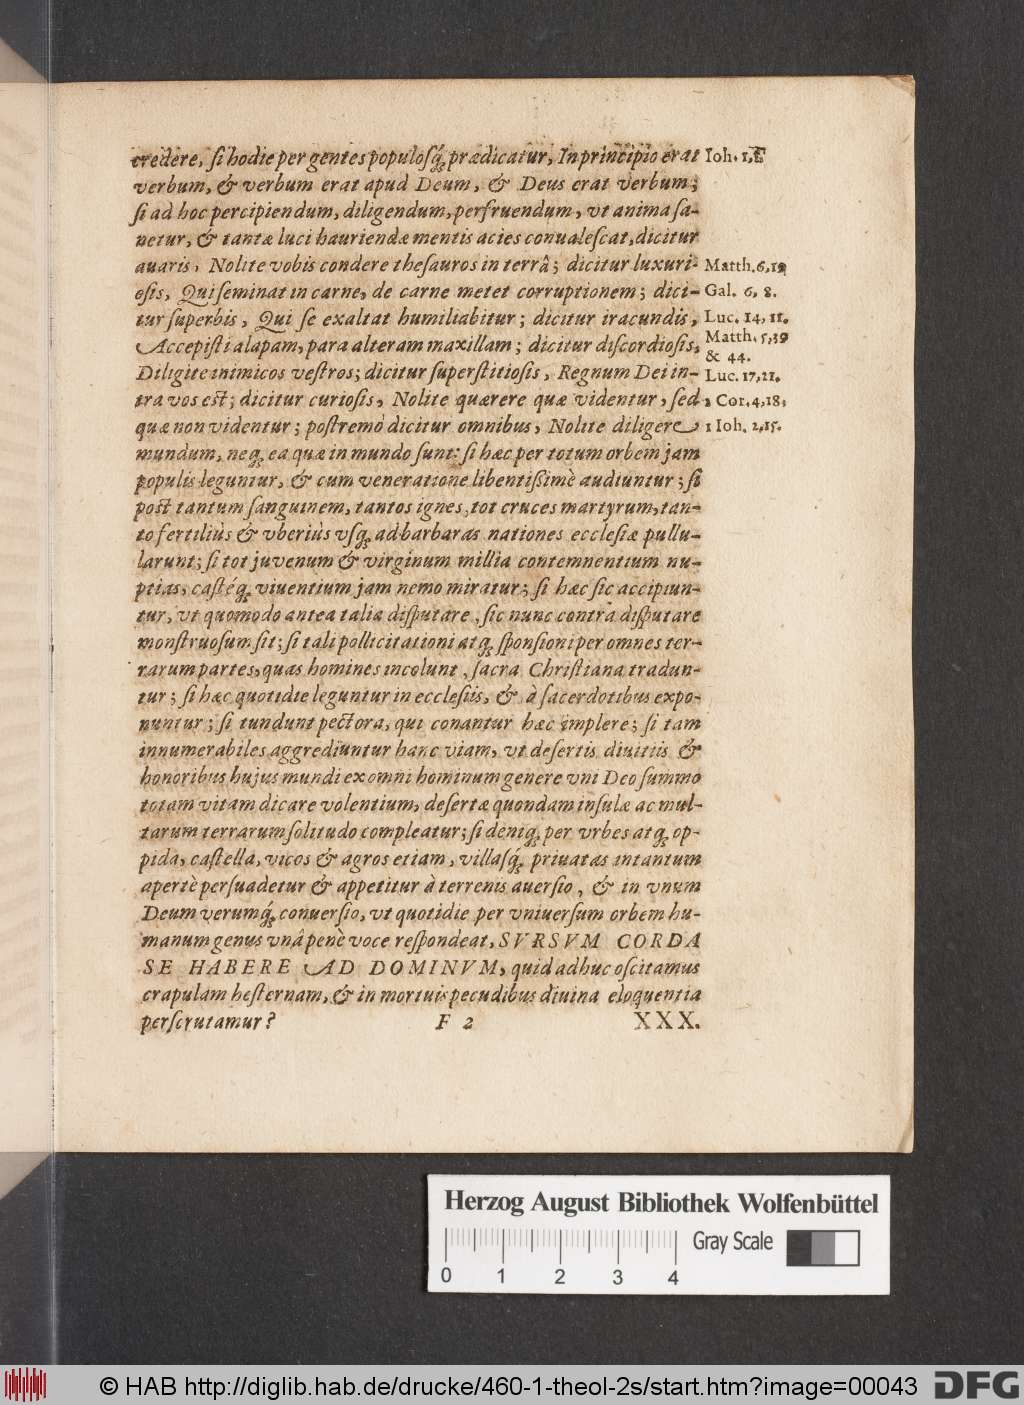 credere, si hodie per gentes populosq́; prædicatur, In principio erat
Ioh. 1,1
verbum, & verbum erat apud Deum, & Deus erat verbum;
si ad hoc percipiendum, diligendum, perfruendum, vt anima sa-
netur, & tantæ luci hauriendæ mentis acies conualescat, dicitur
auaris, Nolite vobis condere thesauros in terrâ; dicitur luxuri-
Matth. 6,19
osis, Qui seminat in carne, de carne metet corruptionem; dici-
Gal. 6, 8.
tur superbis, Qui se exaltat humiliabitur; dicitur iracundis,
Luc. 14, 11.
Accepisti alapam, para alteram maxillam; dicitur discordiosis,
Matth. 5,39
& 44.
Diligite inimicos vestros; dicitur superstitiosis, Regnum Dei in-
Luc. 17,21.
tra vos est; dicitur curiosis, Nolite quærere quæ videntur, sed
2 Cor. 4,18.
quæ non videntur; postremò dicitur omnibus, Nolite diligere
1 Ioh. 2,15.
mundum, neq; ea quæ in mundo sunt: si hæc per totum orbem jam
populis leguntur, & cum veneratione libentissimè audiuntur; si
post tantum sanguinem, tantos ignes, tot cruces martyrum, tan-
to fertiliùs & vberiùs vsq; ad barbaras nationes ecclesiæ pullu-
larunt; si tot juvenum & virginum millia contemnentium nu-
ptias, castéq; viuentium jam nemo miratur; si hæc sic accipiun-
tur, vt quomodo antea talia disputare, sic nunc contrà disputare
monstruosum sit; si tali pollicitationi atq; sponsioni per omnes ter-
rarum partes, quas homines incolunt, sacra Christiana tradun-
tur; si hæc quotidie leguntur in ecclesiis, & à sacerdotibus expo-
nuntur; si tundunt pectora, qui conantur hæc implere; si tam
innumerabiles aggrediuntur hanc viam, vt desertis diuitiis &
honoribus hujus mundi ex omni hominum genere vni Deo summo
totam vitam dicare volentium, desertæ quondam insulæ ac mul-
tarum terrarum solitudo compleatur; si deniq; per vrbes atq; op-
pida, castella, vicos & agros etiam, villasq́; priuatas intantum
apertè persuadetur & appetitur à terrenis auersio, & in vnum
Deum verumq́; conuersio, vt quotidie per vniuersum orbem hu-
manum genus vnâ penè voce respondeat, SVRSVM CORDA
SE HABERE AD DOMINVM, quid adhuc oscitamus
crapulam hesternam, & in mortuis pecudibus diuina eloquentia
perscrutamur?
F 2
XXX.
Herzog August Bibliothek Wolfenbüttel
Gray Scale
0 1 2 3 4
© HAB http://diglib.hab.de/drucke/460-1-theol-2s/start.htm?image=00043
DFG